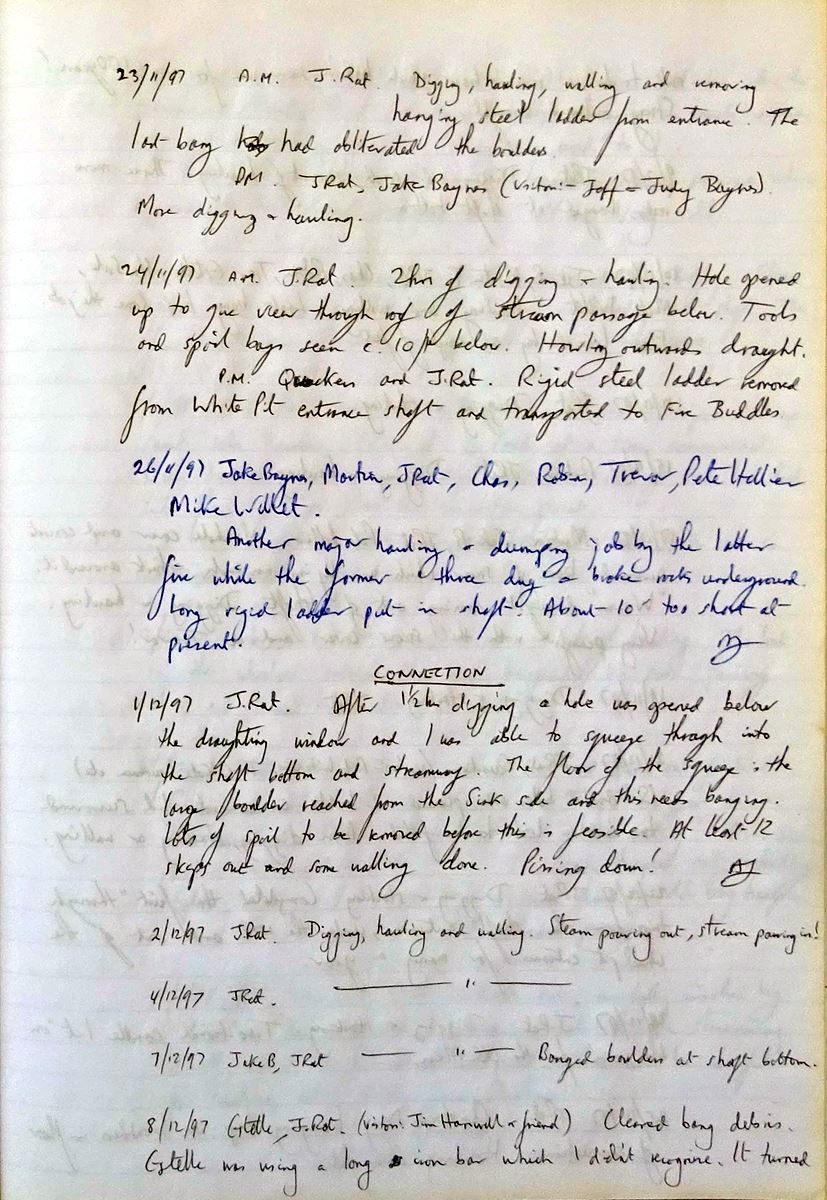 23/11/97 A.M. J.Rat. Digging, hauling, walling and removing
hanging steel ladder from entrance. The
last bang had obliterated the boulders.
P.M. J.Rat, Jake Baynes (visitors:- Joff + Judy Baynes).
More digging + hauling.
24/11/97 A.M. J.Rat. 2hrs of digging + hauling. Hole opened
up to give view through roof of stream passage below. Tools
and spoil bags seen c. 10ft below. Howling outwards draught.
P.M. Quackers and J.Rat. Rigid steel ladder removed
from White Pit entrance shaft and transported to Five Buddles
26/11/97 Jake Baynes, Martin, J.Rat, Chas, Robin, Trevor, Pete Hellier
Mike Willet.
Another major hauling + dumping job by the latter
five while the former three dug + broke rocks underground.
Long rigid ladder put in shaft. About 10' too short at
present.
CONNECTION
1/12/97 J.Rat. After 1½ hrs digging a hole was opened below
the draughting window and I was able to squeeze through into
the shaft bottom and streamway. The floor of the squeeze is the
large boulder reached from the Sink side and this needs banging.
Lots of spoil to be removed before this is feasible. At least 12
skips out and some walling done. Pissing down! AJ
2/12/97 J.Rat. Digging, hauling and walling. Steam pouring out, stream pouring in!
4/12/97 JRat. —— " ——
7/12/97 Jake B, JRat —— " —— Banged boulders at shaft bottom.
8/12/97 Estelle, J.Rat. (visitors: Jim Hanwell + friend) Cleared bang debris.
Estelle was using a long iron bar which I didn't recognise. It turned